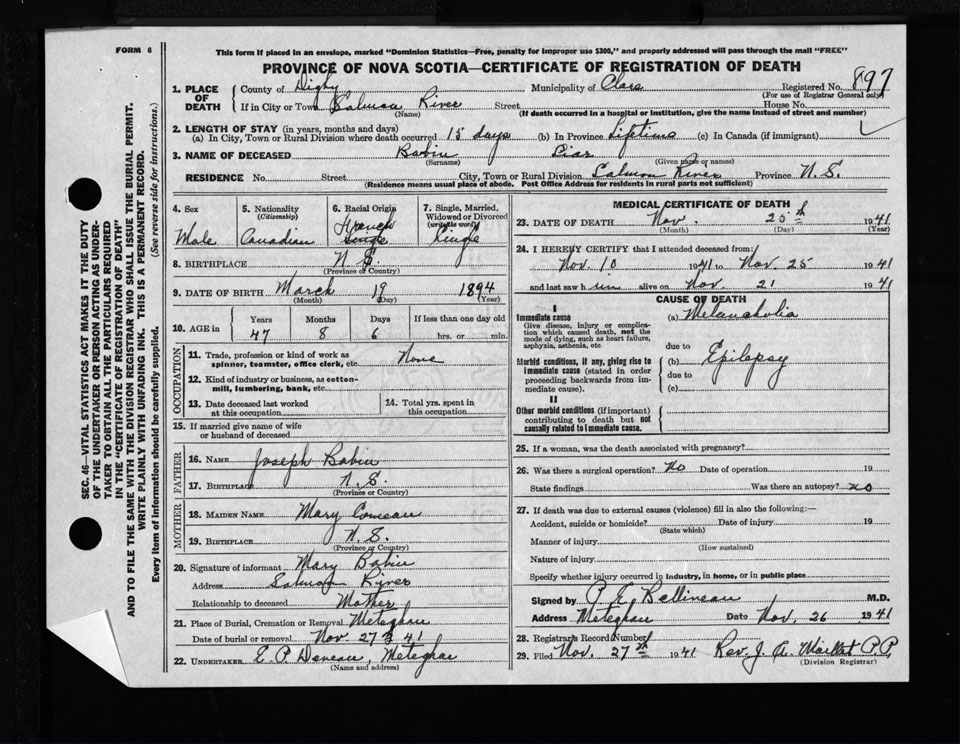 FORM 6
This form if placed in an envelope, marked "Dominion Statistics—Free, penalty for improper use $300," and properly addressed will pass through the mail "FREE"
PROVINCE OF NOVA SCOTIA—CERTIFICATE OF REGISTRATION OF DEATH
1. PLACE OF DEATH County of Digby Municipality of Clare Registered No. 897
(For use of Registrar General only)
If in City or Town Salmon River Street House No.
(Name) (If death occurred in a hospital or institution, give the name instead of street and number)
2. LENGTH OF STAY (in years, months and days)
(a) In City, Town or Rural Division where death occurred 15 days (b) In Province Lifetime (c) In Canada (if immigrant)
3. NAME OF DECEASED Babin Liar
(Surname) (Given name or names)
RESIDENCE No. Street City, Town or Rural Division Salmon River Province N. S.
(Residence means usual place of abode. Post Office Address for residents in rural parts not sufficient)
4. Sex Male
5. Nationality (Citizenship) Canadian
6. Racial Origin French Single
7. Single, Married, Widowed or Divorced (write the word) Single
8. BIRTHPLACE N. S.
(Province or Country)
9. DATE OF BIRTH March 19 1894
(Month) (Day) (Year)
10. AGE in Years Months Days If less than one day old
47 8 6 hrs. or min.
OCCUPATION
11. Trade, profession or kind of work as spinner, teamster, office clerk, etc. None
12. Kind of industry or business, as cotton-mill, lumbering, bank, etc.
13. Date deceased last worked at this occupation
14. Total yrs. spent in this occupation
15. If married give name of wife or husband of deceased
FATHER
16. NAME Joseph Babin
17. BIRTHPLACE N. S.
(Province or Country)
MOTHER
18. MAIDEN NAME Mary Comeau
19. BIRTHPLACE N. S.
(Province or Country)
20. Signature of informant Mary Babin
Address Salmon River
Relationship to deceased Mother
21. Place of Burial, Cremation or Removal Meteghan
Date of burial or removal Nov. 27th 41
22. UNDERTAKER E. P. Deveau, Meteghan
(Name and address)
MEDICAL CERTIFICATE OF DEATH
23. DATE OF DEATH Nov. 25th 1941
(Month) (Day) (Year)
24. I HEREBY CERTIFY that I attended deceased from:
Nov. 10 1941 to Nov. 25 1941
and last saw him alive on Nov. 21 1941
CAUSE OF DEATH
I
Immediate cause
Give disease, injury or complication which caused death, not the mode of dying, such as heart failure, asphyxia, asthenia, etc.
(a) Melancholia
due to
Morbid conditions, if any, giving rise to immediate cause (stated in order proceeding backwards from immediate cause).
(b) Epilepsy
due to
(c)
II
Other morbid conditions (if important) contributing to death but not causally related to immediate cause.
25. If a woman, was the death associated with pregnancy?
26. Was there a surgical operation? No Date of operation 19
State findings Was there an autopsy? no
27. If death was due to external causes (violence) fill in also the following:—
Accident, suicide or homicide? Date of injury 19
(State which)
Manner of injury
(How sustained)
Nature of injury
Specify whether injury occurred in industry, in home, or in public place
Signed by P. E. Bellineau M.D.
Address Meteghan Date Nov. 26 1941
28. Registrar's Record Number
29. Filed Nov. 27th 1941 Rev. J. A. P.P.
(Division Registrar)
SEC. 46—VITAL STATISTICS ACT MAKES IT THE DUTY
OF THE UNDERTAKER OR PERSON ACTING AS UNDER-
TAKER TO OBTAIN ALL THE PARTICULARS REQUIRED
IN THE "CERTIFICATE OF REGISTRATION OF DEATH"
AND TO FILE THE SAME WITH THE DIVISION REGISTRAR WHO SHALL ISSUE THE BURIAL PERMIT.
WRITE PLAINLY WITH UNFADING INK. THIS IS A PERMANENT RECORD.
Every item of information should be carefully supplied. (See reverse side for instructions.)